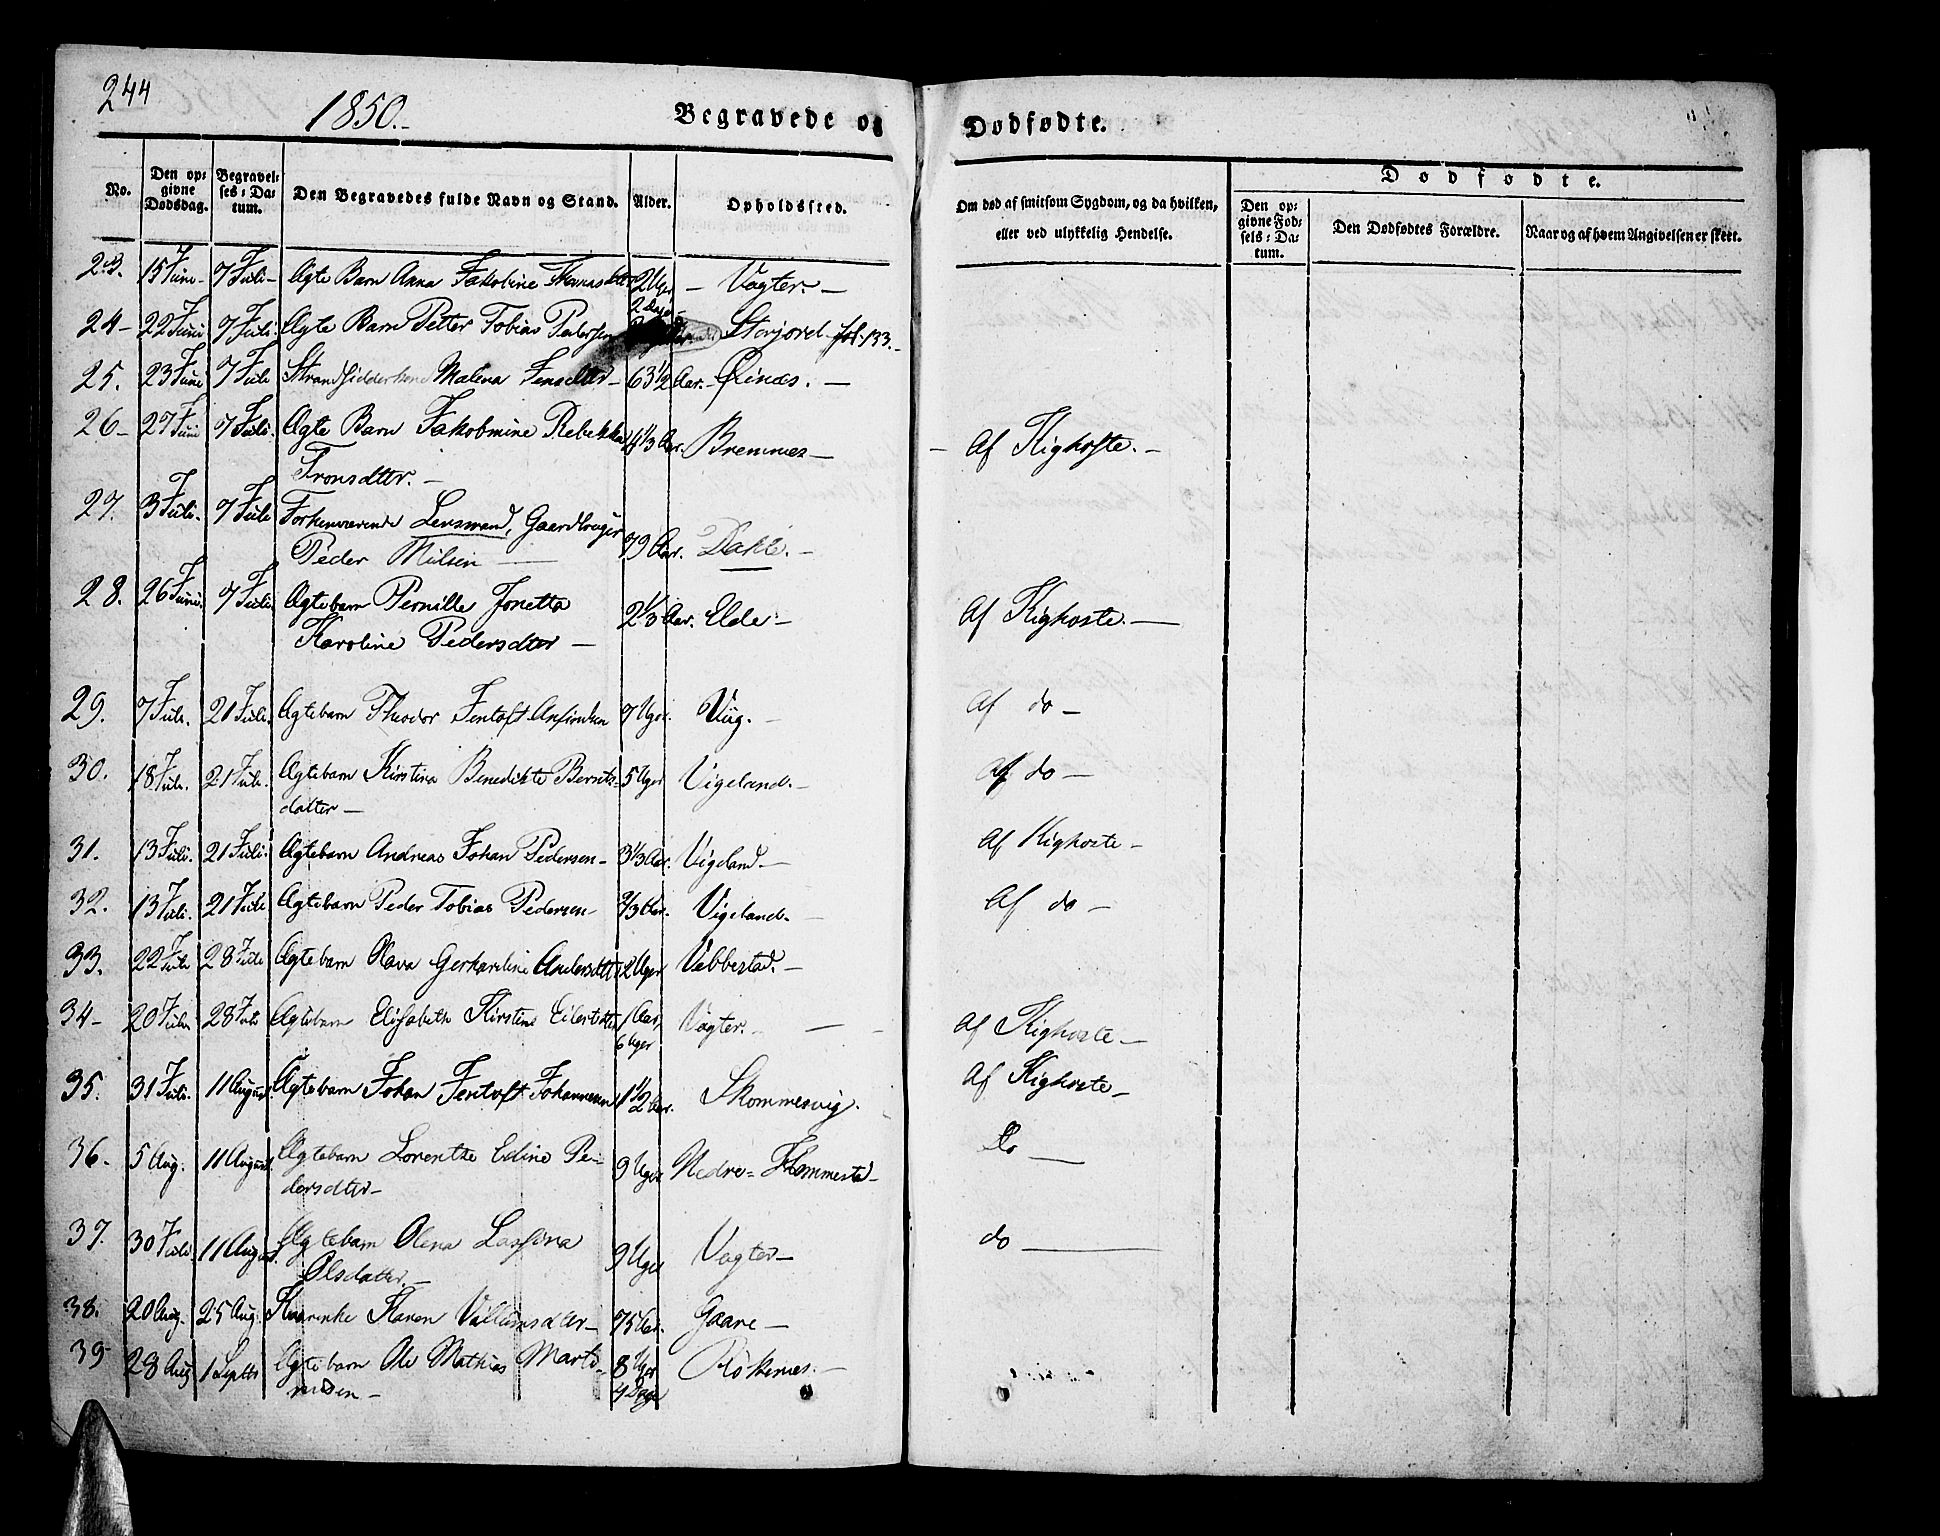 244
1850.-
Begravede og Dødfødte.
No. Den opgivne Dødsdag. Begravelses-Datum. Den Begravedes fulde Navn og Stand. Alder. Opholdssted. Om død af smitsom Sygdom, og da hvilken, eller ved ulykkelig Hendelse. Dødfødte.
Den opgivne Fødsels-Datum. Den Dødfødtes Forældre. Naar og af hvem Angivelsen er skeet.
23. 15 Juni- 7 Juli- Ægte Barn Anna Jakobine Thomasdtter 2 Uger - Vogter. -
24- 22 Juni 7 Juli Ægte Barn Petter Tobias Pedersen 2 Dage Storjord. fol. 133.-
25. 23 Juni 7 Juli Strandsidderkone Malena Jensdtter- 63 1/2 Aar.- Øinæs. -
26- 27 Juni 7 Juli. Ægte Barn Jakobmine Rebekka 4 1/3 Aar. Bremnes- - Af Kighoste. -
Tronsdtter. -
27. 3 Juli. 7 Juli Forhenværende Lensmand, Gaardbruger
Peder Nilsen - 79 Aar. Dahle. -
28. 26 Juni. 7 Juli. Ægtebarn Pernille Jonetta 2 1/3 Aar. Elde - Af Kighoste. -
Karoline Pedersdtter -
29. 7 Juli. 21 Juli. Ægtebarn Theodor Jentoft 7 Uger. Viig. - Af do -
30. 18 Juli. 21 Juli. Ægtebarn Kirstina Benedikte Bernts- 5 Uger Vigeland. - Af do -
datter -
31. 13 Juli. 21 Juli. Ægtebarn Andreas Johan Pedersen- 3 1/3 Aar. Vigeland - Af Kighoste -
32. 13 Juli. 21 Juli Ægtebarn Peder Tobias Pedersen- 2/3 Aar. Vigeland. - Af do -
33. 22 Juli 28 Juli Ægtebarn Olava Gerhardine Andersdtt. 2 Uger Vebbestad. -
34- 20 Juli 28 Juli Ægtebarn Elisabeth Kirstine Eilertsdtter 1 Aar, Vogter. - Af Kighoste -
6 Uger
35. 31 Juli. 11 August. Ægtebarn Johan Jentoft Johannesen 1 1/2 Aar. Skommesvig. Af Kighoste -
36. 5 Aug. 11 August. Ægtebarn Lorentze Edine Pe- 9 Uger Nedre= Flommesta- Do -
dersdtter -
37. 30 Juli. 11 August. Ægtebarn Olena Lassina 9 Uger Vogter- do -
Olsdatter. -
38. 20 Aug. 25 Aug. Kaarenke Karen Villumsdtter- 75 Aar. Gaare -
39 28 Aug 1 Septbr Ægtebarn Ole Mathias Marti- 8 Uger Røkenes. -
nusen - 4 Dage